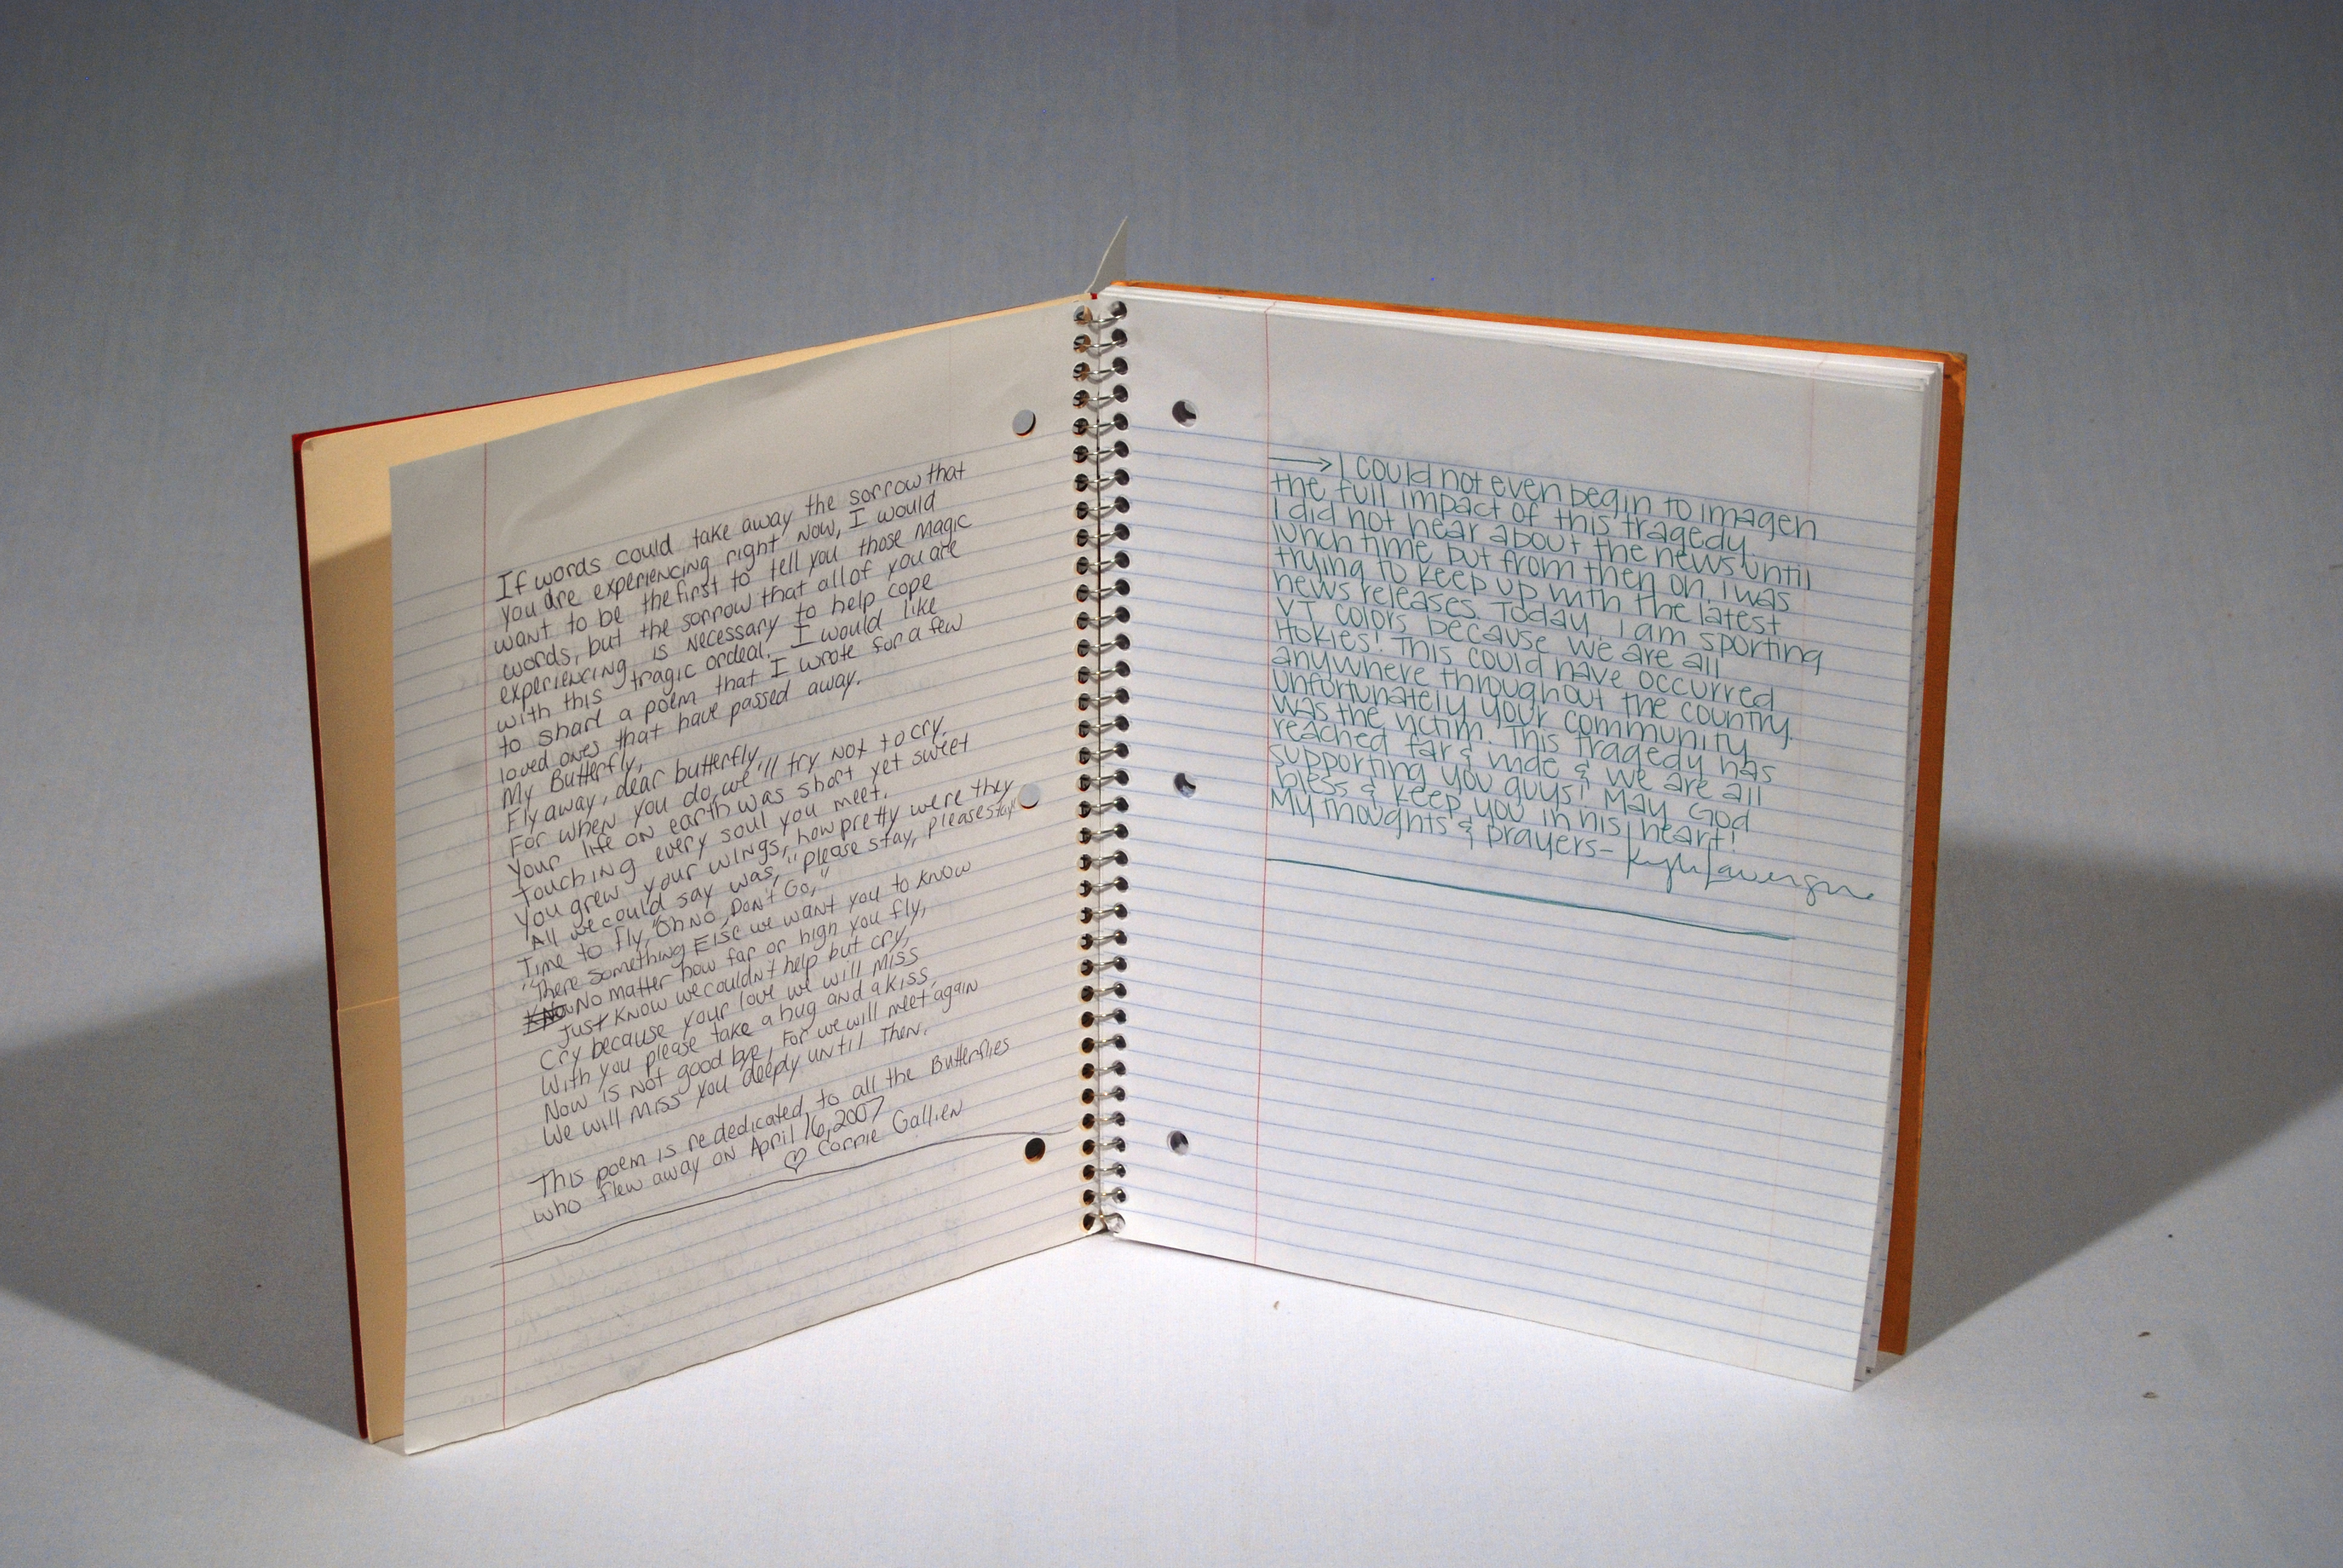 If words could take away the sorrow that
you are experiencing right now, I would
want to be the first to tell you those magic
words, but the sorrow that all of you are
experiencing is necessary to help cope
with this tragic ordeal. I would like
to share a poem that I wrote for a few
loved ones that have passed away.
My Butterfly,
Fly away, dear butterfly
For when you do, we'll try not to cry.
Your life on earth was short yet sweet
Touching every soul you meet.
You grew your wings, how pretty were they
All we could say was, "please stay, please stay"
Time to fly, "Oh no, Don't Go,"
"There something Else we want you to know
No matter how far or high you fly,
Just know we couldn't help but cry,
Cry because your love we will miss
With you please take a hug and a kiss,
Now is not good bye, for we will meet again
We will miss you deeply until Then.
This poem is rededicated to all the Butterflies
who flew away on April 16, 2007
♡ Corrie Gallien
→ I could not even begin to imagen
the full impact of this tragedy.
I did not hear about the news until
lunch time but from then on, i was
trying to keep up with the latest
news releases. Today, i am sporting
VT colors because we are all
Hokies! This could have occurred
anywhere throughout the country.
Unfortunately your community
was the victim. This tragedy has
reached far & wide & we are all
supporting you guys! May God
bless & keep you in his heart!
My thoughts & prayers-